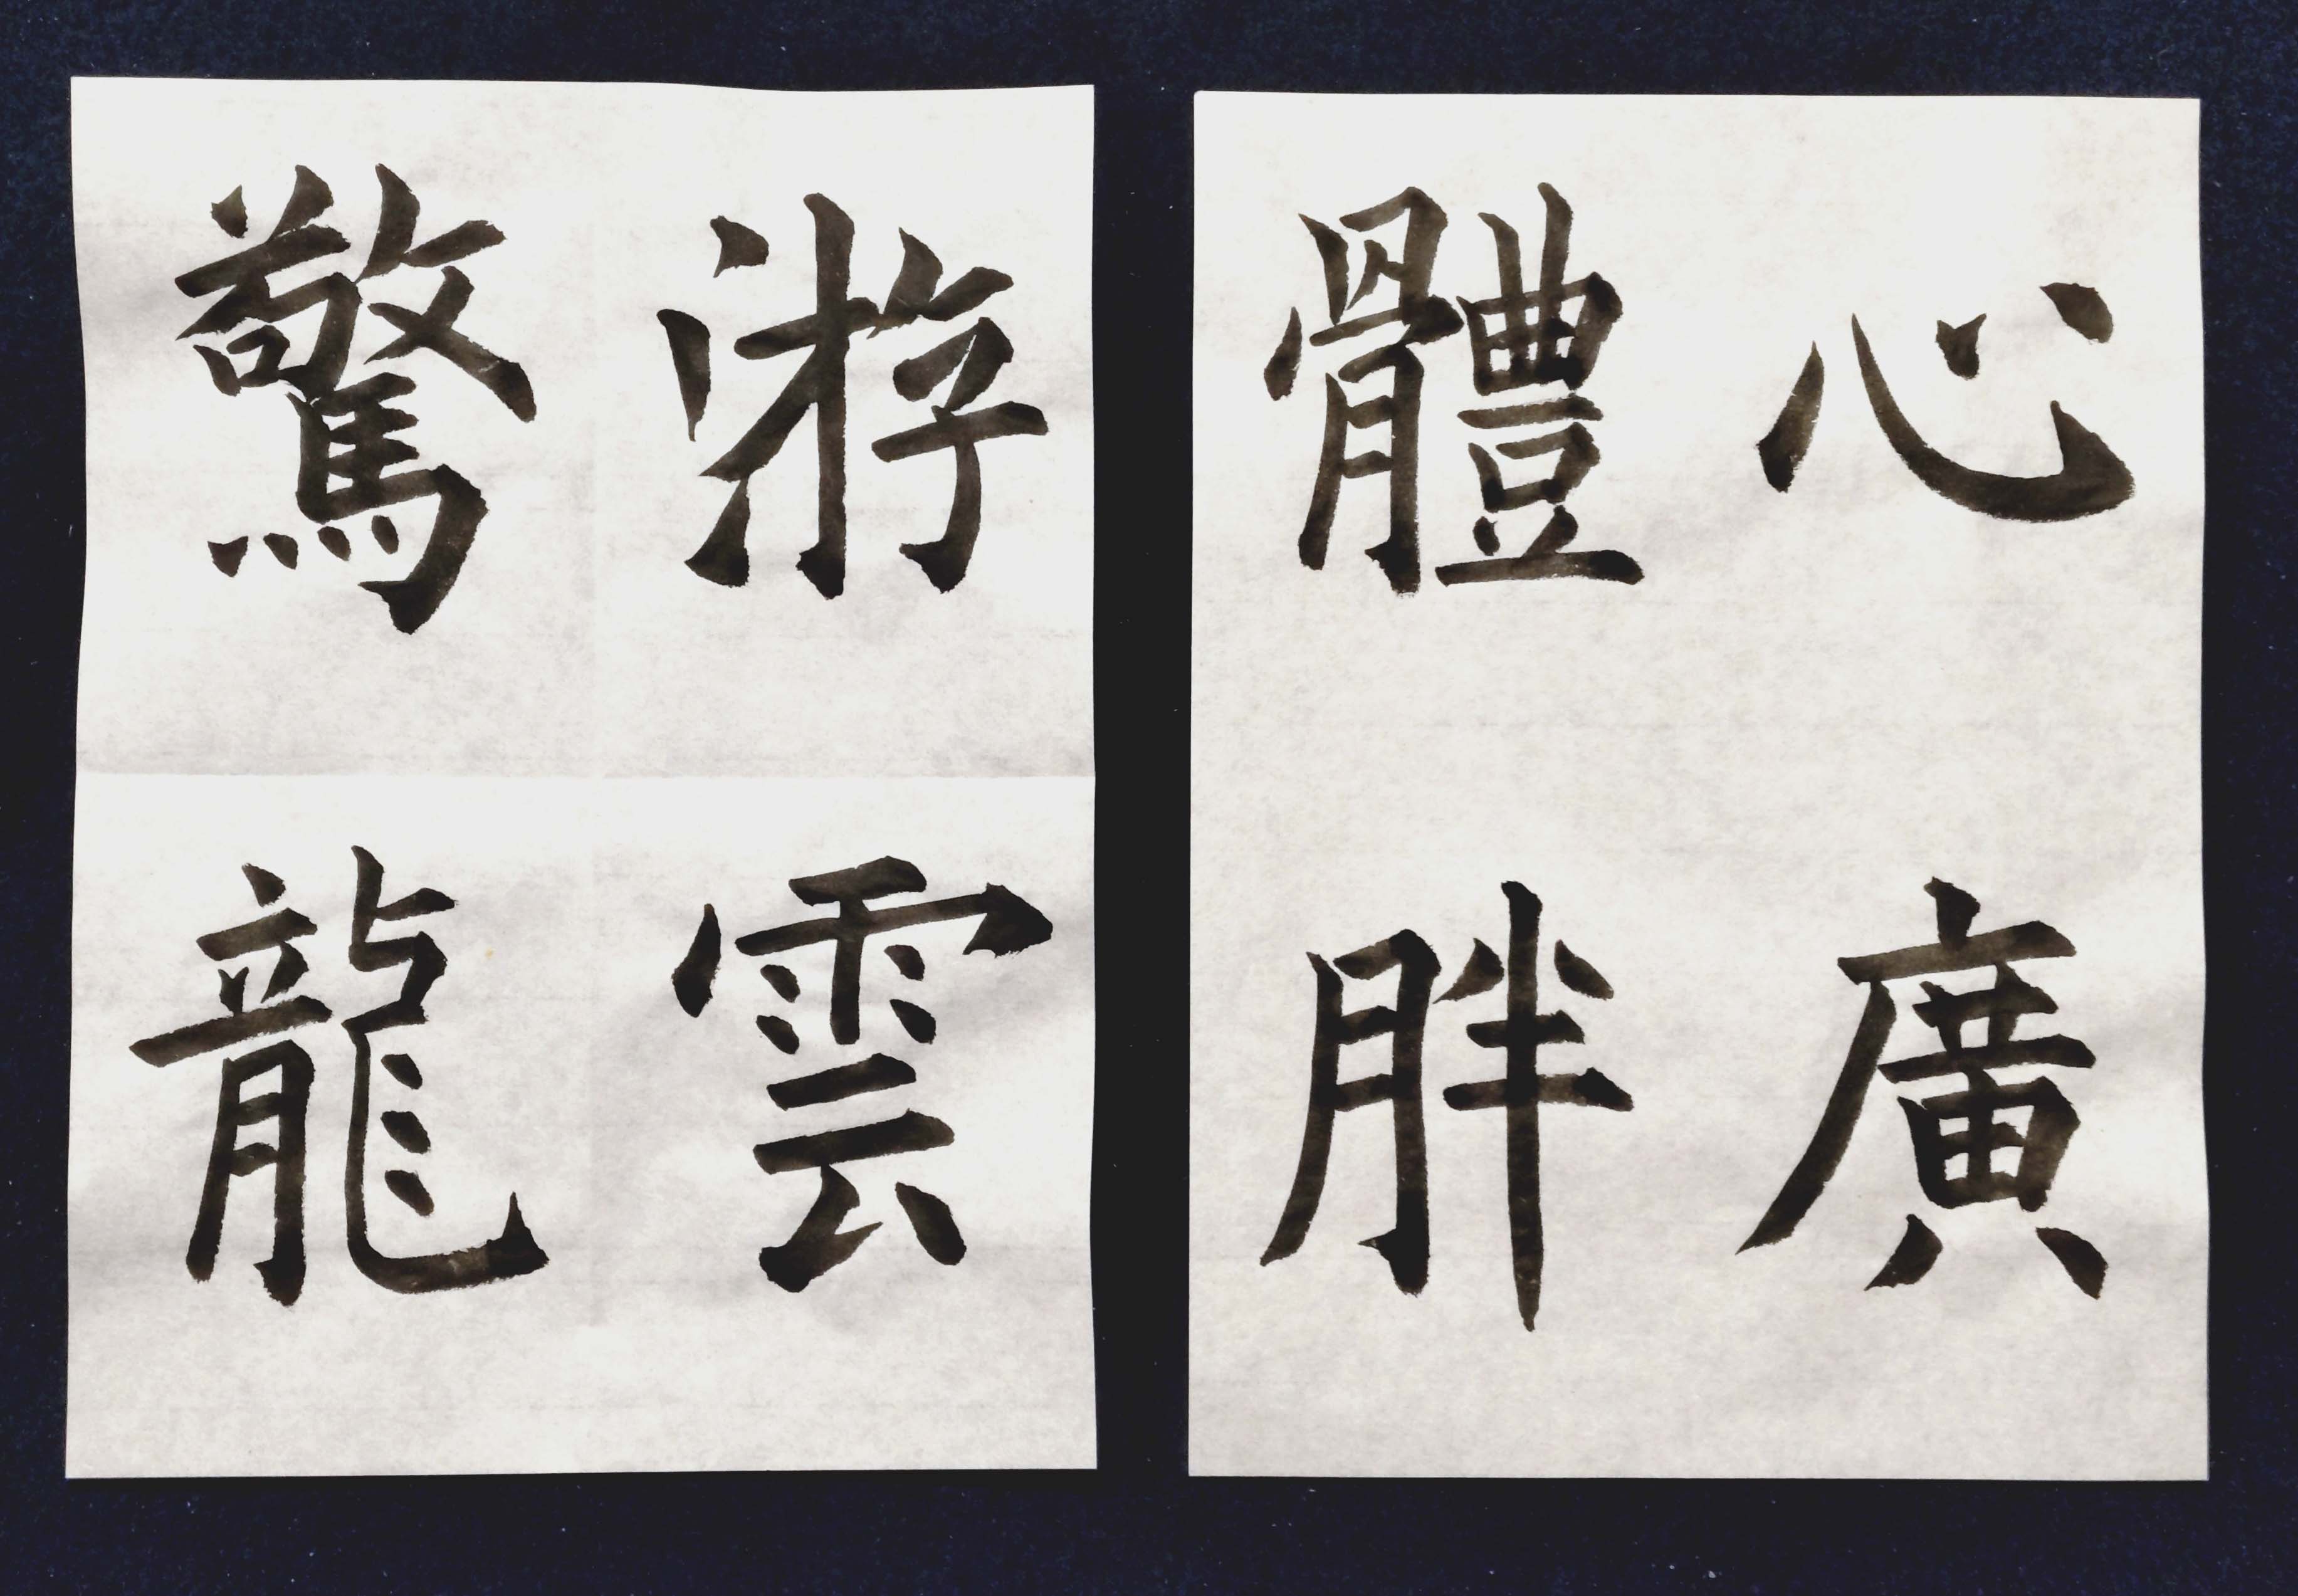 心廣
體胖
游雲
驚龍